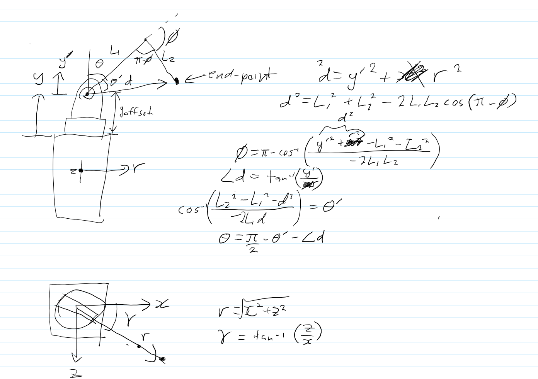 y
y'
θ
L₁
π-ϕ
ϕ
L₂
θ'
d
end-point
yoffset
z
r
²d = y'² + r²
d² = L₁² + L₂² - 2L₁L₂ cos(π-ϕ)
d²
ϕ = π - cos⁻¹ (y'² + r² - L₁² - L₂² / -2L₁L₂)
∠d = tan⁻¹ (y'/
cos⁻¹ (L₂² - L₁² - d² / -2L₁d) = θ'
θ = π/2 - θ' - ∠d
x
γ
r
z
r = √x² + z²
γ = tan-1 (z/x)